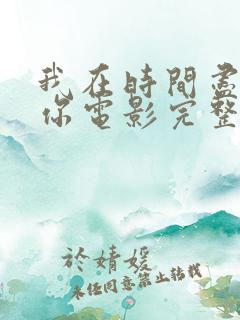 我在時間盡
你電影完整
於婧媛
未经同意禁止转载